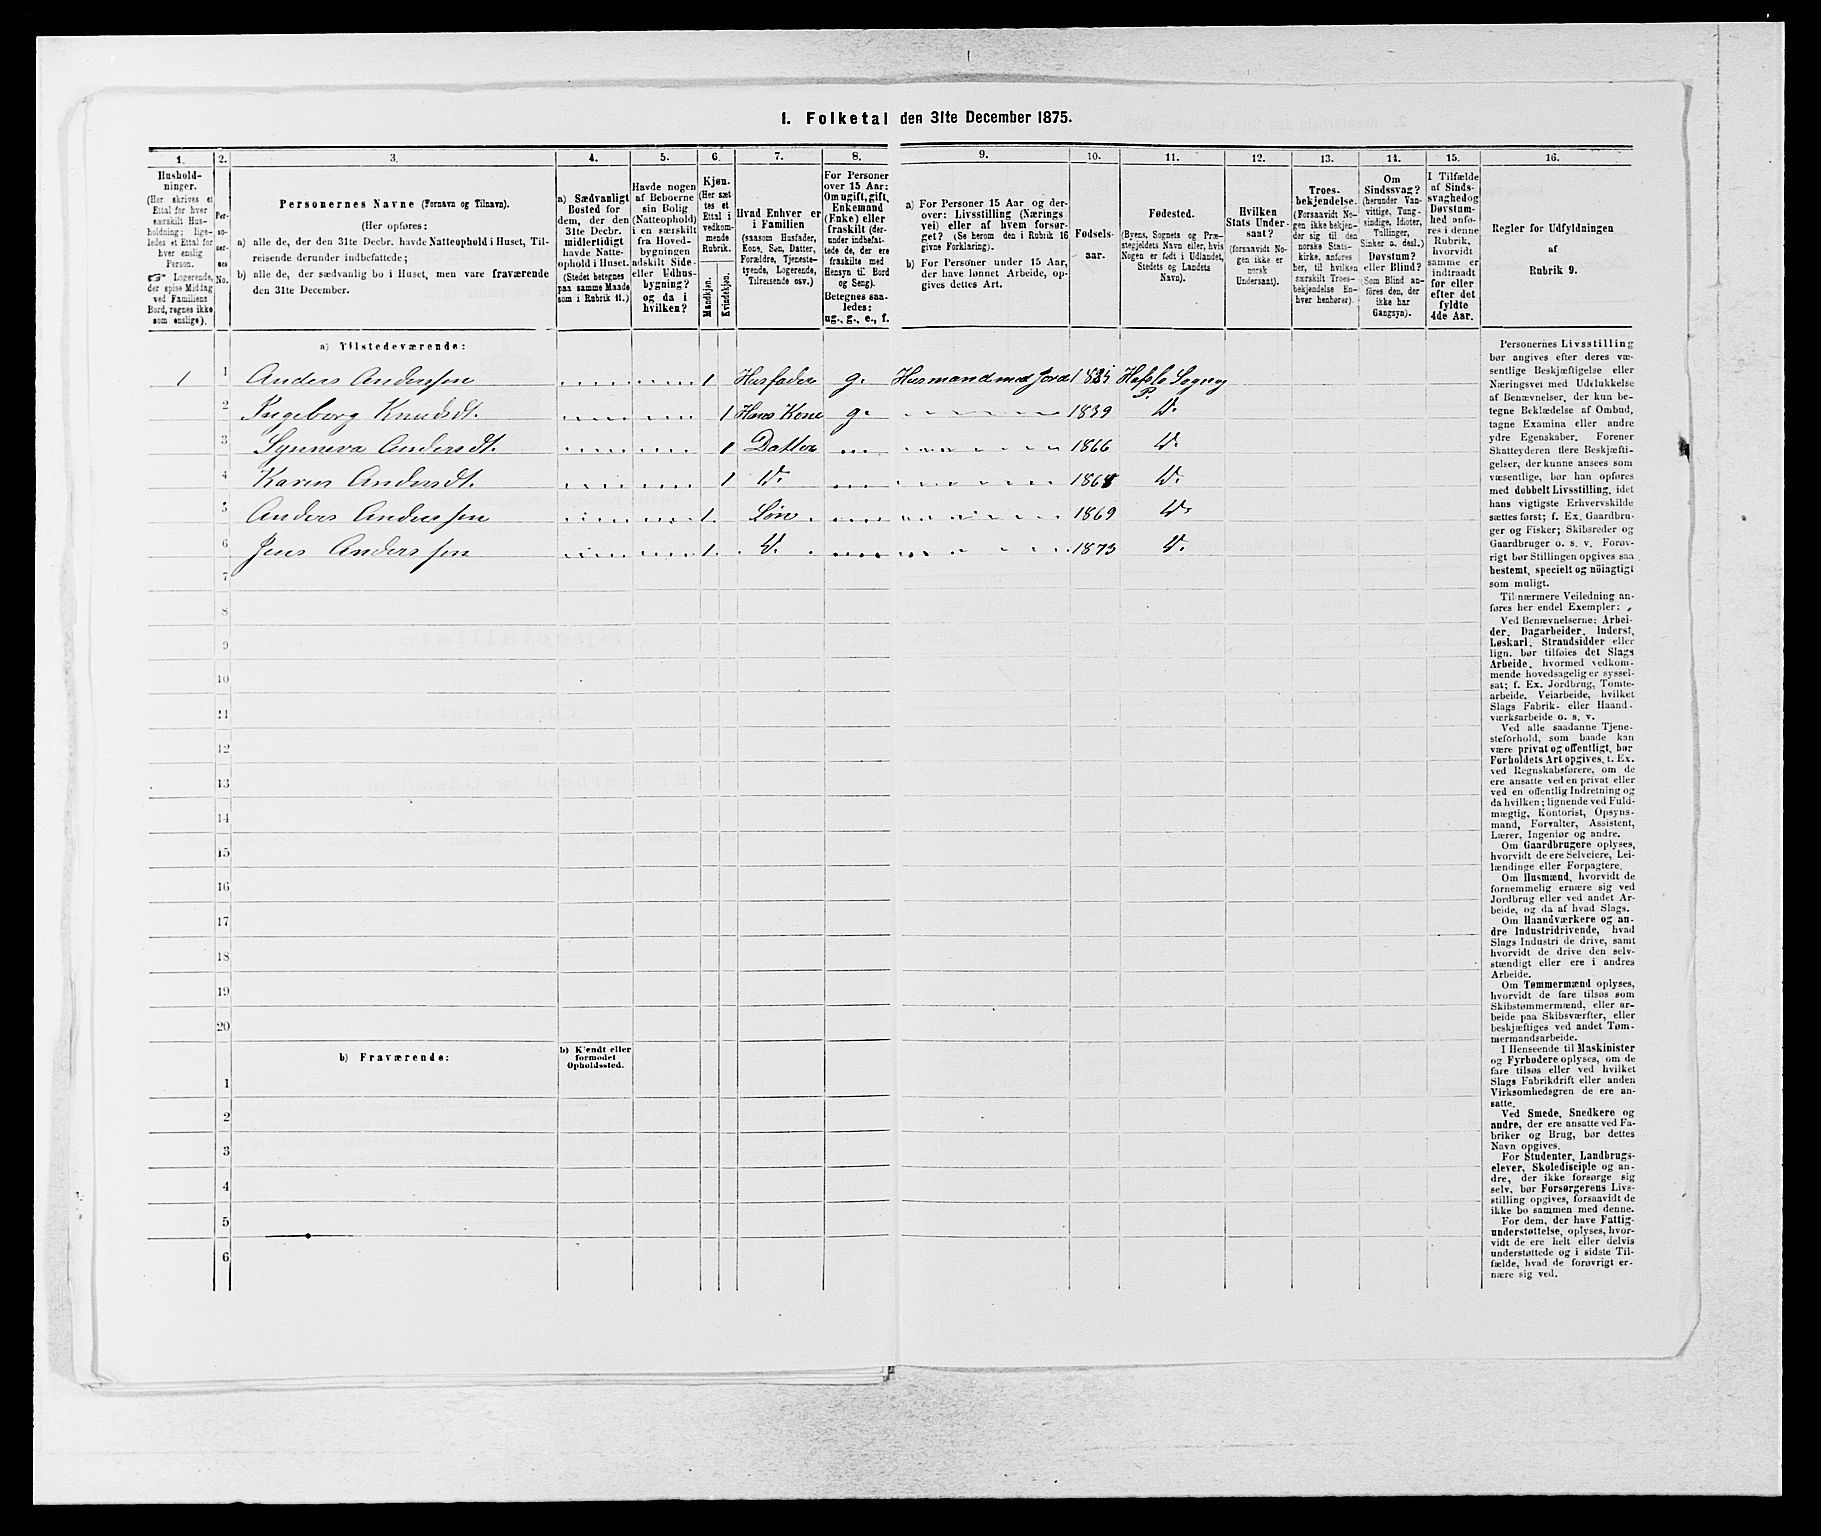 1. Folketal den 31te December 1875.
1. 2. 3. 4. 5. 6. 7. 8. 9. 10. 11. 12. 13. 14. 15. 16.
Hushold-
ninger.
(Her skrives et
Ettal for hver
særskilt Hus-
holdning; lige-
ledes et Ettal for
hver enslig
Person.
☞ Logerende,
der spise Middag
ved Familiens
Bord, regnes ikke
som enslige).
Per-
so-
ner-
nes
No.
Personernes Navne (Fornavn og Tilnavn).
(Her opføres:
a) alle de, der den 31te Decbr. havde Natteophold i Huset, Til-
reisende derunder indbefattede;
b) alle de, der sædvanlig bo i Huset, men vare fraværende
den 31te December.
a) Sædvanligt
Bosted for
dem, der den
31te Decbr.
midlertidigt
havde Natte-
ophold i Huset.
(Stedet betegnes
paa samme Maade
som i Rubrik 11.)
Havde nogen
af Beboerne
sin Bolig
(Natteophold)
i en særskilt
fra Hoved-
bygningen
adskilt Side-
eller Udhus-
bygning?
og da i
hvilken?
Kjøn.
(Her sæt-
tes et
Ettal i
vedkom-
mende
Rubrik.
Mandkjøn.
Kvindekjøn.
Hvad Enhver er
i Familien
(saasom Husfader,
Kone, Søn, Datter,
Forældre, Tjeneste-
tyende, Logerende,
Tilreisende osv.)
For Personer
over 15 Aar:
Om ugift, gift,
Enkemand
(Enke) eller
fraskilt (der-
under indbefat-
tede de, der ere
fraskilte med
Hensyn til Bord
og Seng).
Betegnes saa-
ledes:
ug., g., e., f.
a) For Personer 15 Aar og der-
over: Livsstilling (Nærings
vei) eller af hvem forsør-
get? (Se herom den i Rubrik 16
givne Forklaring).
b) For Personer under 15 Aar,
der have lønnet Arbeide, op-
gives dettes Art.
Fødsels-
aar.
Fødested.
(Byens, Sognets og Præ-
stegjeldets Navn eller, hvis
Nogen er født i Udlandet,
Stedets og Landets
Navn).
Hvilken
Stats Under-
saat?
(forsaavidt No-
gen ikke er
norsk
Undersaat).
Troes-
bekjendelse.
(Forsaavidt No-
gen ikke bekjen-
der sig til den
norske Stats-
kirke, anføres
her, til hvilken
særskilt Troes-
bekjendelse En-
hver henhører).
Om
Sindssvag?
(herunder Van-
vittige, Tung-
sindige, Idioter,
Tullinger,
Sinker o. desl.)
Døvstum?
eller Blind?
(Som Blind an-
føres den, der
ikke har
Gangsyn).
I Tilfælde
af Sinds-
svaghed og
Døvstum-
hed anfø-
res i denne
Rubrik,
hvorvidt
samme er
indtraadt
før eller
efter det
fyldte
4de Aar.
Regler for Udfyldningen
af
Rubrik 9.
a) Tilstedeværende:
1 1 Anders Anderssen 1 Husfader g. Husmand med Jord 1835 Hafslo Sogn og P.
2 Ingeborg Knudsdt. 1 Hans Kone g. 1839 D.
3 Synneva Andersdt. 1 Datter 1866 D.
4 Karen Andersdt. 1 D. 1868 D.
5 Anders Anderssen 1 Søn 1869 D.
6 Jens Anderssen 1 D. 1873 D.
7
8
9
10
11
12
13
14
15
16
17
18
19
20
b) Fraværende:
b) Kjendt eller
formodet
Opholdssted.
1
2
3
4
5
6
Personernes Livsstilling
bør angives efter deres væ-
sentlige Beskjæftigelse eller
Næringsvei med Udelukkelse
af Benævnelser, der kun be-
tegne Beklædelse af Ombud,
tagne Examina eller andre
ydre Egenskaber. Forener
Skatteyderen flere Beskjæfti-
gelser, der kunne ansees som
væsentlige, bør han opføres
med dobbelt Livsstilling, idet
hans vigtigste Erhvervskilde
sættes først; f. Ex. Gaardbru-
ger og Fisker; Skibsreder og
Gaardbruger o. s. v. Forøv-
rigt bør Stillingen opgives saa
bestemt, specielt og nøiagtigt
som muligt.
Til nærmere Veiledning an-
føres her endel Exempler:
Ved Benævnelserne: Arbei-
der, Dagarbeider, Inderst,
Løskarl, Strandsidder eller
lign. bør tilføies det Slags
Arbeide, hvormed vedkom-
mende hovedsagelig er syssel-
sat; f. Ex. Jordbrug, Tomte-
arbeide, Veiarbeide, hvilket
Slags Fabrik- eller Haand-
værksarbeide o. s. v.
Ved alle saadanne Tjene-
steforhold, som baade kan
være privat og offentligt, bør
Forholdets Art opgives, f. Ex.
ved Regnskabsførere, om de
ere ansatte ved en privat eller
ved en offentlig Indretning og
da hvilken; lignende ved Fuld-
mægtig, Kontorist, Opsyns-
mand, Forvalter, Assistent,
Lærer, Ingeniør og andre.
Om Gaardbrugere oplyses,
hvorvidt de ere Selveiere, Lei-
lændinge eller Forpagtere.
Om Husmænd, hvorvidt de
fornemmelig ernære sig ved
Jordbrug eller ved andet Ar-
beide, og da af hvad Slags.
Om Haandværkere og an-
dre Industridrivende, hvad
Slags Industri de drive, samt
hvorvidt de drive den selv-
stændigt eller ere i andres
Arbeide.
Om Tømmermænd oplyses,
hvorvidt de fare tilsøs som
Skibstømmermænd, eller ar-
beide paa Skibsværfter, eller
beskjæftiges ved andet Tøm-
mermandsarbeide.
I Henseende til Maskinister
og Fyrbødere oplyses, om de
fare tilsøs eller ved hvilket
Slags Fabrikdrift eller anden
Virksomhedsgren de ere an-
satte.
Ved Smede, Snedkere og
andre, der ere ansatte ved Fa-
briker og Brug, bør dettes
Navn opgives.
For Studenter, Landbrugs-
elever, Skoledisciple og an-
dre, der ikke forsørge sig
selv, bør Forsørgerens Livs-
stilling opgives, forsaavidt de
ikke bo sammen med denne.
For dem, der have Fattig-
understøttelse, oplyses, hvor-
vidt de ere helt eller delvis
understøttede og i sidste Til-
fælde, hvad de forøvrigt er-
nære sig ved.